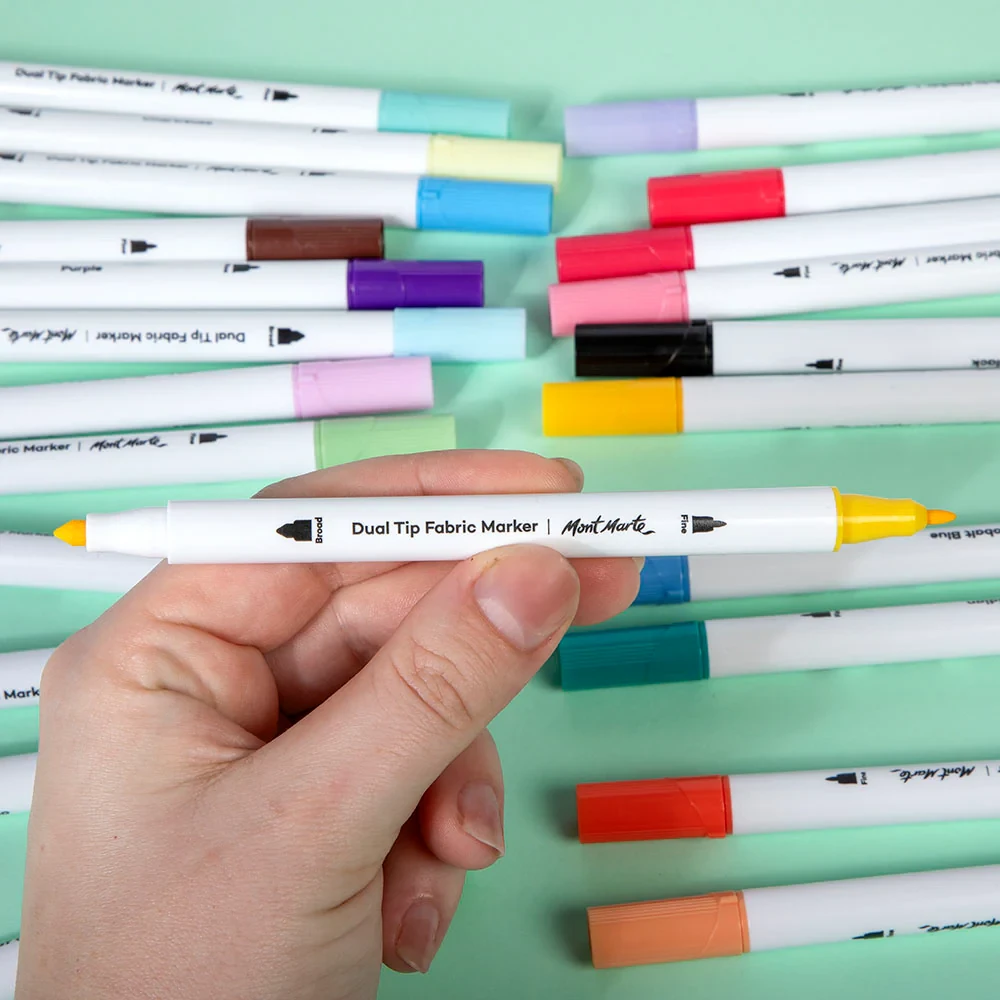 Dual Tip Fabric Marker | Mont Marte
Dual Tip Fabric Marker
Fine
Purple
Fine
Mont Marte | Dual Tip Fabric Marker Broad
ric Marker | Mont Marte Fine
Fine Mont Marte | bric Marker
lack
Broad Dual Tip Fabric Marker | Mont Marte Fine
obalt Blue
Mark
Fine Mont Marte |